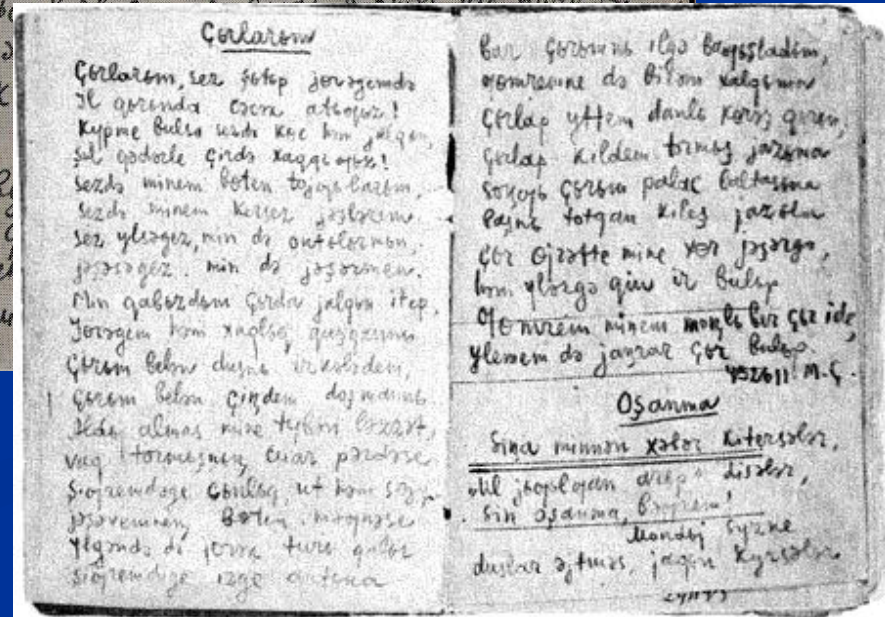 Çьrlarьm
Çьrlarьm, sez şьtьp jɵrəgemdə
Il qьrьnda cəcək atьƣьz!
Kypme bulsa sezdə kɵc həm jalqьn,
Şul qədərle çirdə xaqqьƣьz!
Sezdə minem bɵten tojƣьlarьm,
Sezdə minem kersez jəşlərem.
Sez ylsəgez, min də onьtьlьrmьn,
jəşəsəgez, min də jəşərmen.
Min qabьzdьm çьrda jalqьn itep,
Jɵrəgem həm xaqlьq quşqannь
Çьrьm belən dusnь irkələdem,
Çьrьm belən çiŋdem doşmannь.
Aldьj almas mine tybən ləzzət,
vaq tormьşnьŋ cuar pərdəse
Şiƣremdəge cьnlьq, ut həm sɵjy
jəşəvemneŋ bɵten məƣnəse
Ylgəndə də jɵrək turь qalьr
Şiƣremdəge izge antьna
Bar çьrьmnь ilgə baƣьşladьm,
ƣomremne də birəm xalqьma
Çьrlap yttem danlь kɵrəş qьrьn,
çьrlap kildem tormьş jazьma
soŋƣь çьrьm palac baltasьna
başnь totqan kileş jazьla
Çьr ɵjrətte mine xɵr jəşərgə,
həm ylərgə qьju ir bulьp
ƣomrem minem moŋlь ber çьr ide,
ylemem də jaŋrar çьr bulьp.
M.Ç.
Oşanma
Siŋa minnən xəbər kitersələr,
disələr,
Sin oşanma, bəƣrem!
Mondьj syzne
duslar əjtməs, jaqьn kyrsələr